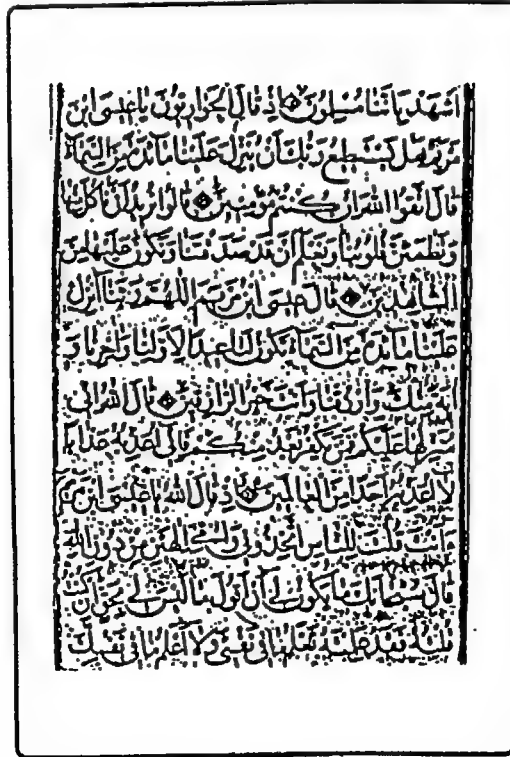 اشْهَدْ بِاَنَّنَا مُسْلِمُونَ اِذْ قَالَ الْحَوَارِيُّونَ يَا عِيسَى ابْنَ
مَرْيَمَ هَلْ يَسْتَطِيعُ رَبُّكَ اَنْ يُنَزِّلَ عَلَيْنَا مَآئِدَةً مِنَ السَّمَآءِ
قَالَ اتَّقُوا اللهَ اِنْ كُنْتُمْ مُؤْمِنِينَ قَالُوا نُرِيدُ اَنْ نَاْكُلَ مِنْهَا
وَتَطْمَئِنَّ قُلُوبُنَا وَنَعْلَمَ اَنْ قَدْ صَدَقْتَنَا وَنَكُونَ عَلَيْهَا مِنَ
الشَّاهِدِينَ قَالَ عِيسَى ابْنُ مَرْيَمَ اللّٰهُمَّ رَبَّنَا اَنْزِلْ
عَلَيْنَا مَآئِدَةً مِنَ السَّمَآءِ تَكُونُ لَنَا عِيدًا لِاَوَّلِنَا وَاٰخِرِنَا وَ
اٰيَةً مِنْكَ وَارْزُقْنَا وَاَنْتَ خَيْرُ الرَّازِقِينَ قَالَ اللهُ اِنِّي
مُنَزِّلُهَا عَلَيْكُمْ فَمَنْ يَكْفُرْ بَعْدُ مِنْكُمْ فَاِنِّي اُعَذِّبُهُ عَذَابًا
لَا اُعَذِّبُهُ اَحَدًا مِنَ الْعَالَمِينَ وَاِذْ قَالَ اللهُ يَا عِيسَى ابْنَ مَرْيَمَ
ءَاَنْتَ قُلْتَ لِلنَّاسِ اتَّخِذُونِي وَاُمِّيَ اِلٰهَيْنِ مِنْ دُونِ اللهِ
قَالَ سُبْحَانَكَ مَا يَكُونُ لِي اَنْ اَقُولَ مَا لَيْسَ لِي بِحَقٍّ اِنْ كُنْتُ
قُلْتُهُ فَقَدْ عَلِمْتَهُ تَعْلَمُ مَا فِي نَفْسِي وَلَا اَعْلَمُ مَا فِي نَفْسِكَ